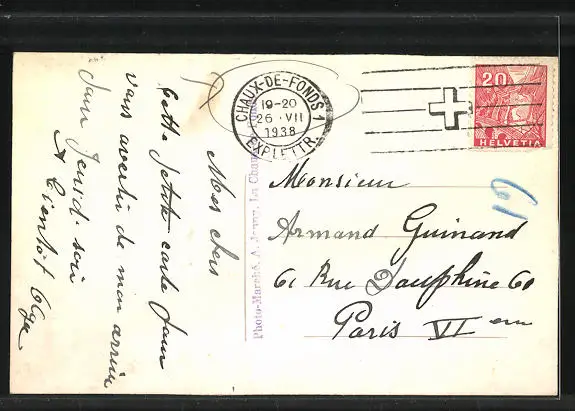 CHAUX-DE-FONDS 1
19-20
26·VII
1938
EXPL. LETTR.
20
HELVETIA
Monsieur
Armand Guinand
61 Rue Dauphine 60
Paris VI em
61
Photo-Marché, A. Jenny, La Chaux
Mes chers
Cette petite carte pour
vous avertir de mon arrivée
pour jeudi soir
A bientôt